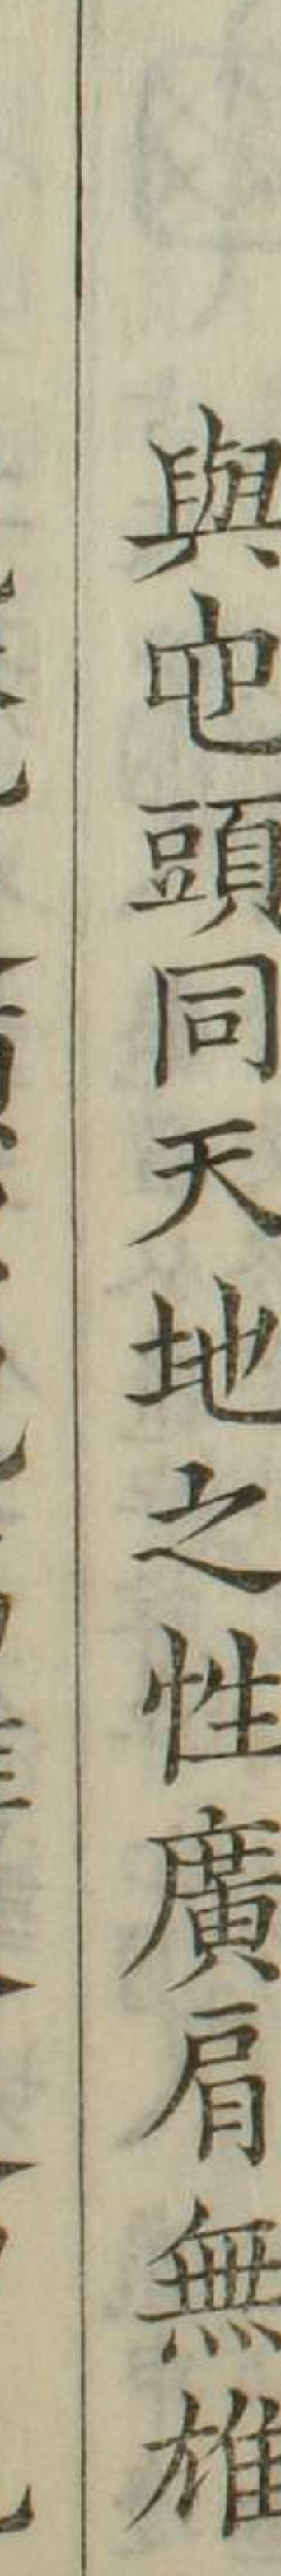 與虵頭同天地之性廣肩無雄